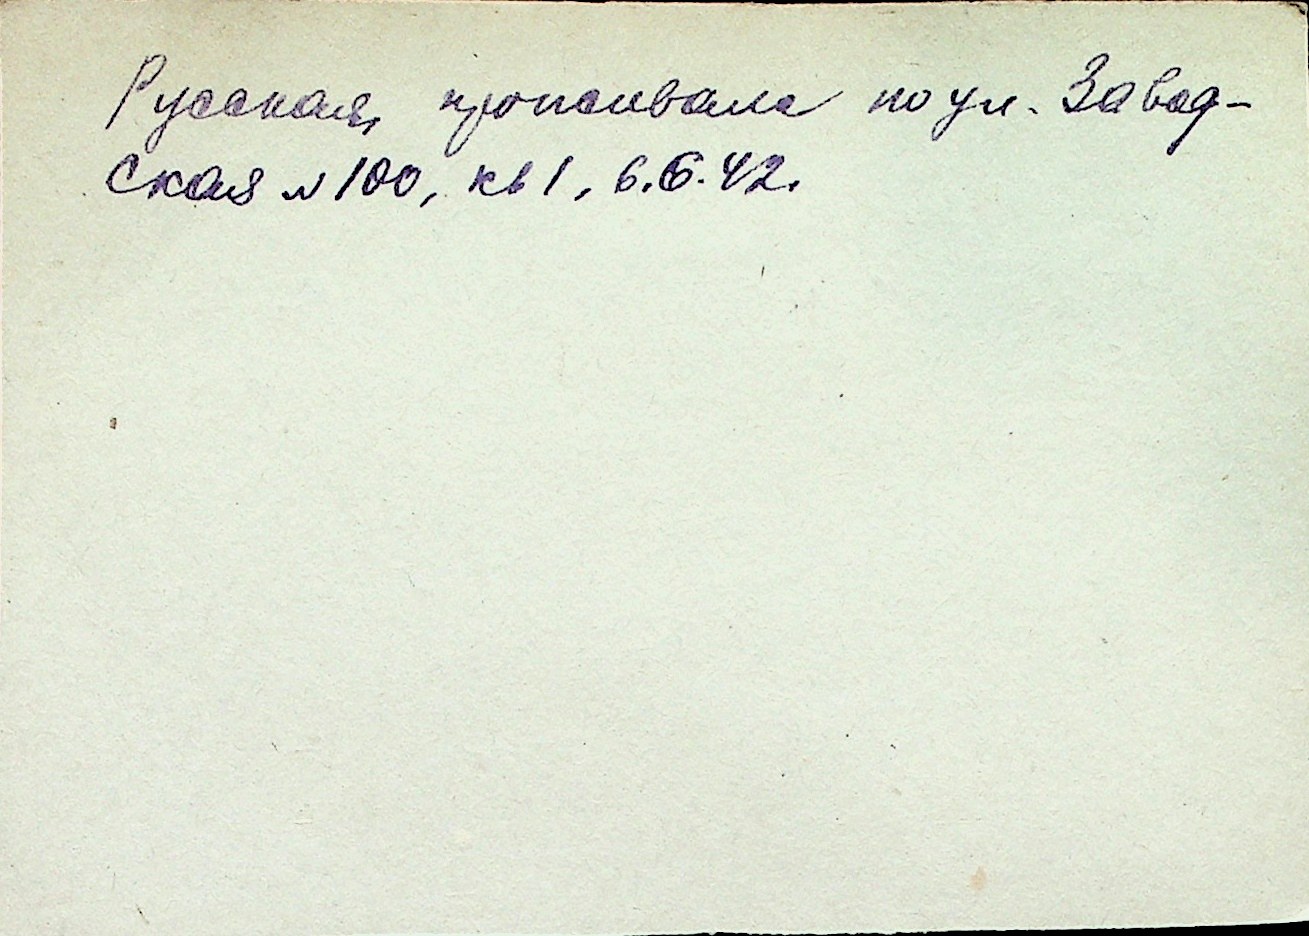 Русская, проживала по ул. Завод-
ская № 100, кв 1, 6.6.42.